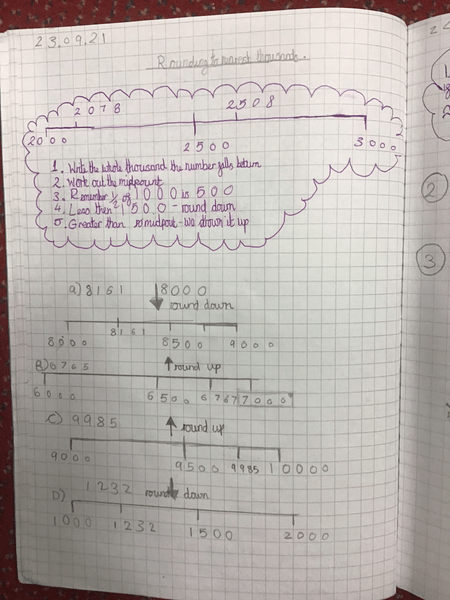 23.09.21
Rounding to nearest thousands.
2078 2508
2000 2500 3000
1. Write the whole thousand the number falls betwen
2. Work out the midpount
3. Remember ½ of 1000 is 500
4. Less then 1500 - round down
5. Greater than midpout - we down it up
a) 8161 8000
round down
8161
8000 8500 9000
B) 6765 round up
6000 6500 6767 7000
C) 9985 round up
9000 9500 9985 10000
D) 1232 round down
1000 1232 1500 2000
2
3